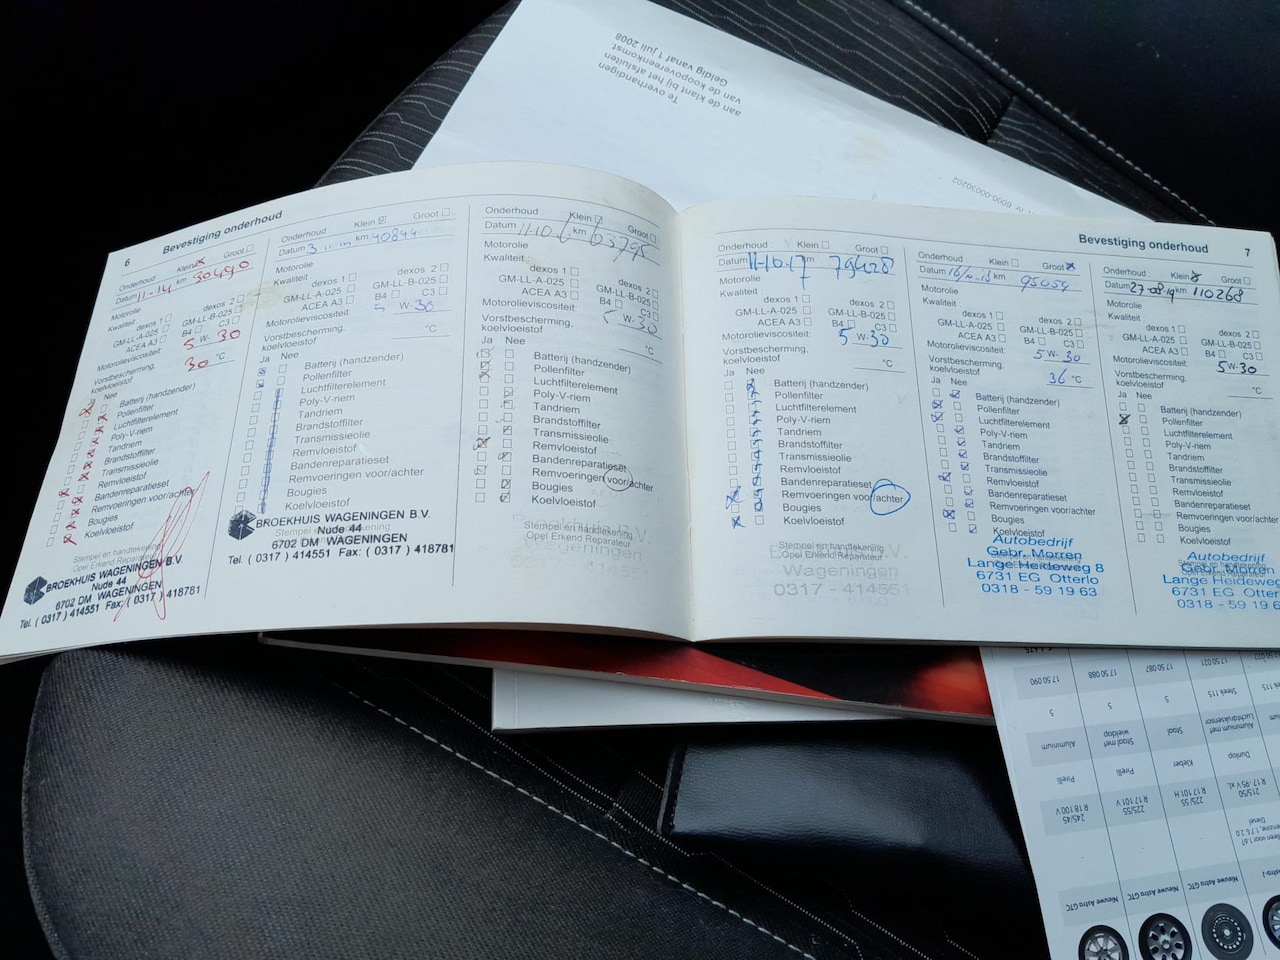 Te overhandigen
aan de klant bij het afsluiten
van de koopovereenkomst
Geldig vanaf 1 juli 2008
nr. 6000-00030202
6 Bevestiging onderhoud
Onderhoud Klein Groot
Datum 11-14 km 30490
Motorolie
Kwaliteit dexos 1 dexos 2
GM-LL-A-025 GM-LL-B-025
ACEA A3 B4 C3
Motorolieviscositeit 5 W- 30
Vorstbescherming,
koelvloeistof 30 °C
Ja Nee
Batterij (handzender)
Pollenfilter
Luchtfilterelement
Poly-V-riem
Tandriem
Brandstoffilter
Transmissieolie
Remvloeistof
Bandenreparatieset
Remvoeringen voor/achter
Bougies
Koelvloeistof
Stempel en handtekening
Opel Erkend Reparateur
BROEKHUIS WAGENINGEN B.V.
Nude 44
6702 DM WAGENINGEN
Tel. ( 0317 ) 414551 Fax: ( 0317 ) 418781
Onderhoud Klein Groot
Datum 3 km 40844
Motorolie
Kwaliteit dexos 1 dexos 2
GM-LL-A-025 GM-LL-B-025
ACEA A3 B4 C3
Motorolieviscositeit: W- 30
Vorstbescherming,
koelvloeistof °C
Ja Nee
Batterij (handzender)
Pollenfilter
Luchtfilterelement
Poly-V-riem
Tandriem
Brandstoffilter
Transmissieolie
Remvloeistof
Bandenreparatieset
Remvoeringen voor/achter
Bougies
Koelvloeistof
BROEKHUIS WAGENINGEN B.V.
Nude 44
6702 DM WAGENINGEN
Tel. ( 0317 ) 414551 Fax: ( 0317 ) 418781
Onderhoud Klein Groot
Datum 11-10 km
Motorolie
Kwaliteit: dexos 1 dexos 2
GM-LL-A-025 GM-LL-B-025
ACEA A3 B4 C3
Motorolieviscositeit: W- 30
Vorstbescherming,
koelvloeistof °C
Ja Nee
Batterij (handzender)
Pollenfilter
Luchtfilterelement
Poly-V-riem
Tandriem
Brandstoffilter
Transmissieolie
Remvloeistof
Bandenreparatieset
Remvoeringen voor/achter
Bougies
Koelvloeistof
Stempel en handtekening
Opel Erkend Reparateur
Bevestiging onderhoud 7
Onderhoud Klein Groot
Datum 11-10-17 79428
Motorolie
Kwaliteit: dexos 1 dexos 2
GM-LL-A-025 GM-LL-B-025
ACEA A3 B4 C3
Motorolieviscositeit: 5 W-30
Vorstbescherming,
koelvloeistof °C
Ja Nee
Batterij (handzender)
Pollenfilter
Luchtfilterelement
Poly-V-riem
Tandriem
Brandstoffilter
Transmissieolie
Remvloeistof
Bandenreparatieset
Remvoeringen voor/achter
Bougies
Koelvloeistof
Stempel en handtekening
Opel Erkend Reparateur
Wageningen
0317 - 414551
Onderhoud Klein Groot
Datum km 95054
Motorolie
Kwaliteit: dexos 1 dexos 2
GM-LL-A-025 GM-LL-B-025
ACEA A3 B4 C3
Motorolieviscositeit: 5 W- 30
Vorstbescherming,
koelvloeistof 36 °C
Ja Nee
Batterij (handzender)
Pollenfilter
Luchtfilterelement
Poly-V-riem
Tandriem
Brandstoffilter
Transmissieolie
Remvloeistof
Bandenreparatieset
Remvoeringen voor/achter
Bougies
Koelvloeistof
Autobedrijf
Gebr. Morren
Lange Heideweg 8
6731 EG Otterlo
0318 - 59 19 63
Onderhoud : Klein Groot
Datum 27-08-19 km 110268
Motorolie
Kwaliteit: dexos 1 dexos 2
GM-LL-A-025 GM-LL-B-025
ACEA A3 B4 C3
Motorolieviscositeit: 5 W-30
Vorstbescherming,
koelvloeistof °C
Ja Nee
Batterij (handzender)
Pollenfilter
Luchtfilterelement
Poly-V-riem
Tandriem
Brandstoffilter
Transmissieolie
Remvloeistof
Bandenreparatieset
Remvoeringen voor/achter
Bougies
Koelvloeistof
Autobedrijf
Gebr. Morren
Lange Heideweg
6731 EG Otter
0318 - 59 19 6
Nieuwe Astra GTC Nieuwe Astra GTC Nieuwe Astra GTC
245/45 R 18 100 V 225/55 R17 101 V 225/55 R17 101 H 215/50 R 17-95 V XL
Pirelli Pirelli Kleber Dunlop
Aluminium Staal met wieldop Staal Aluminium met Luchtdruksensor
5 5 5 Steek 115
17 50 090 17 50 088 17 50 087 17 50 021